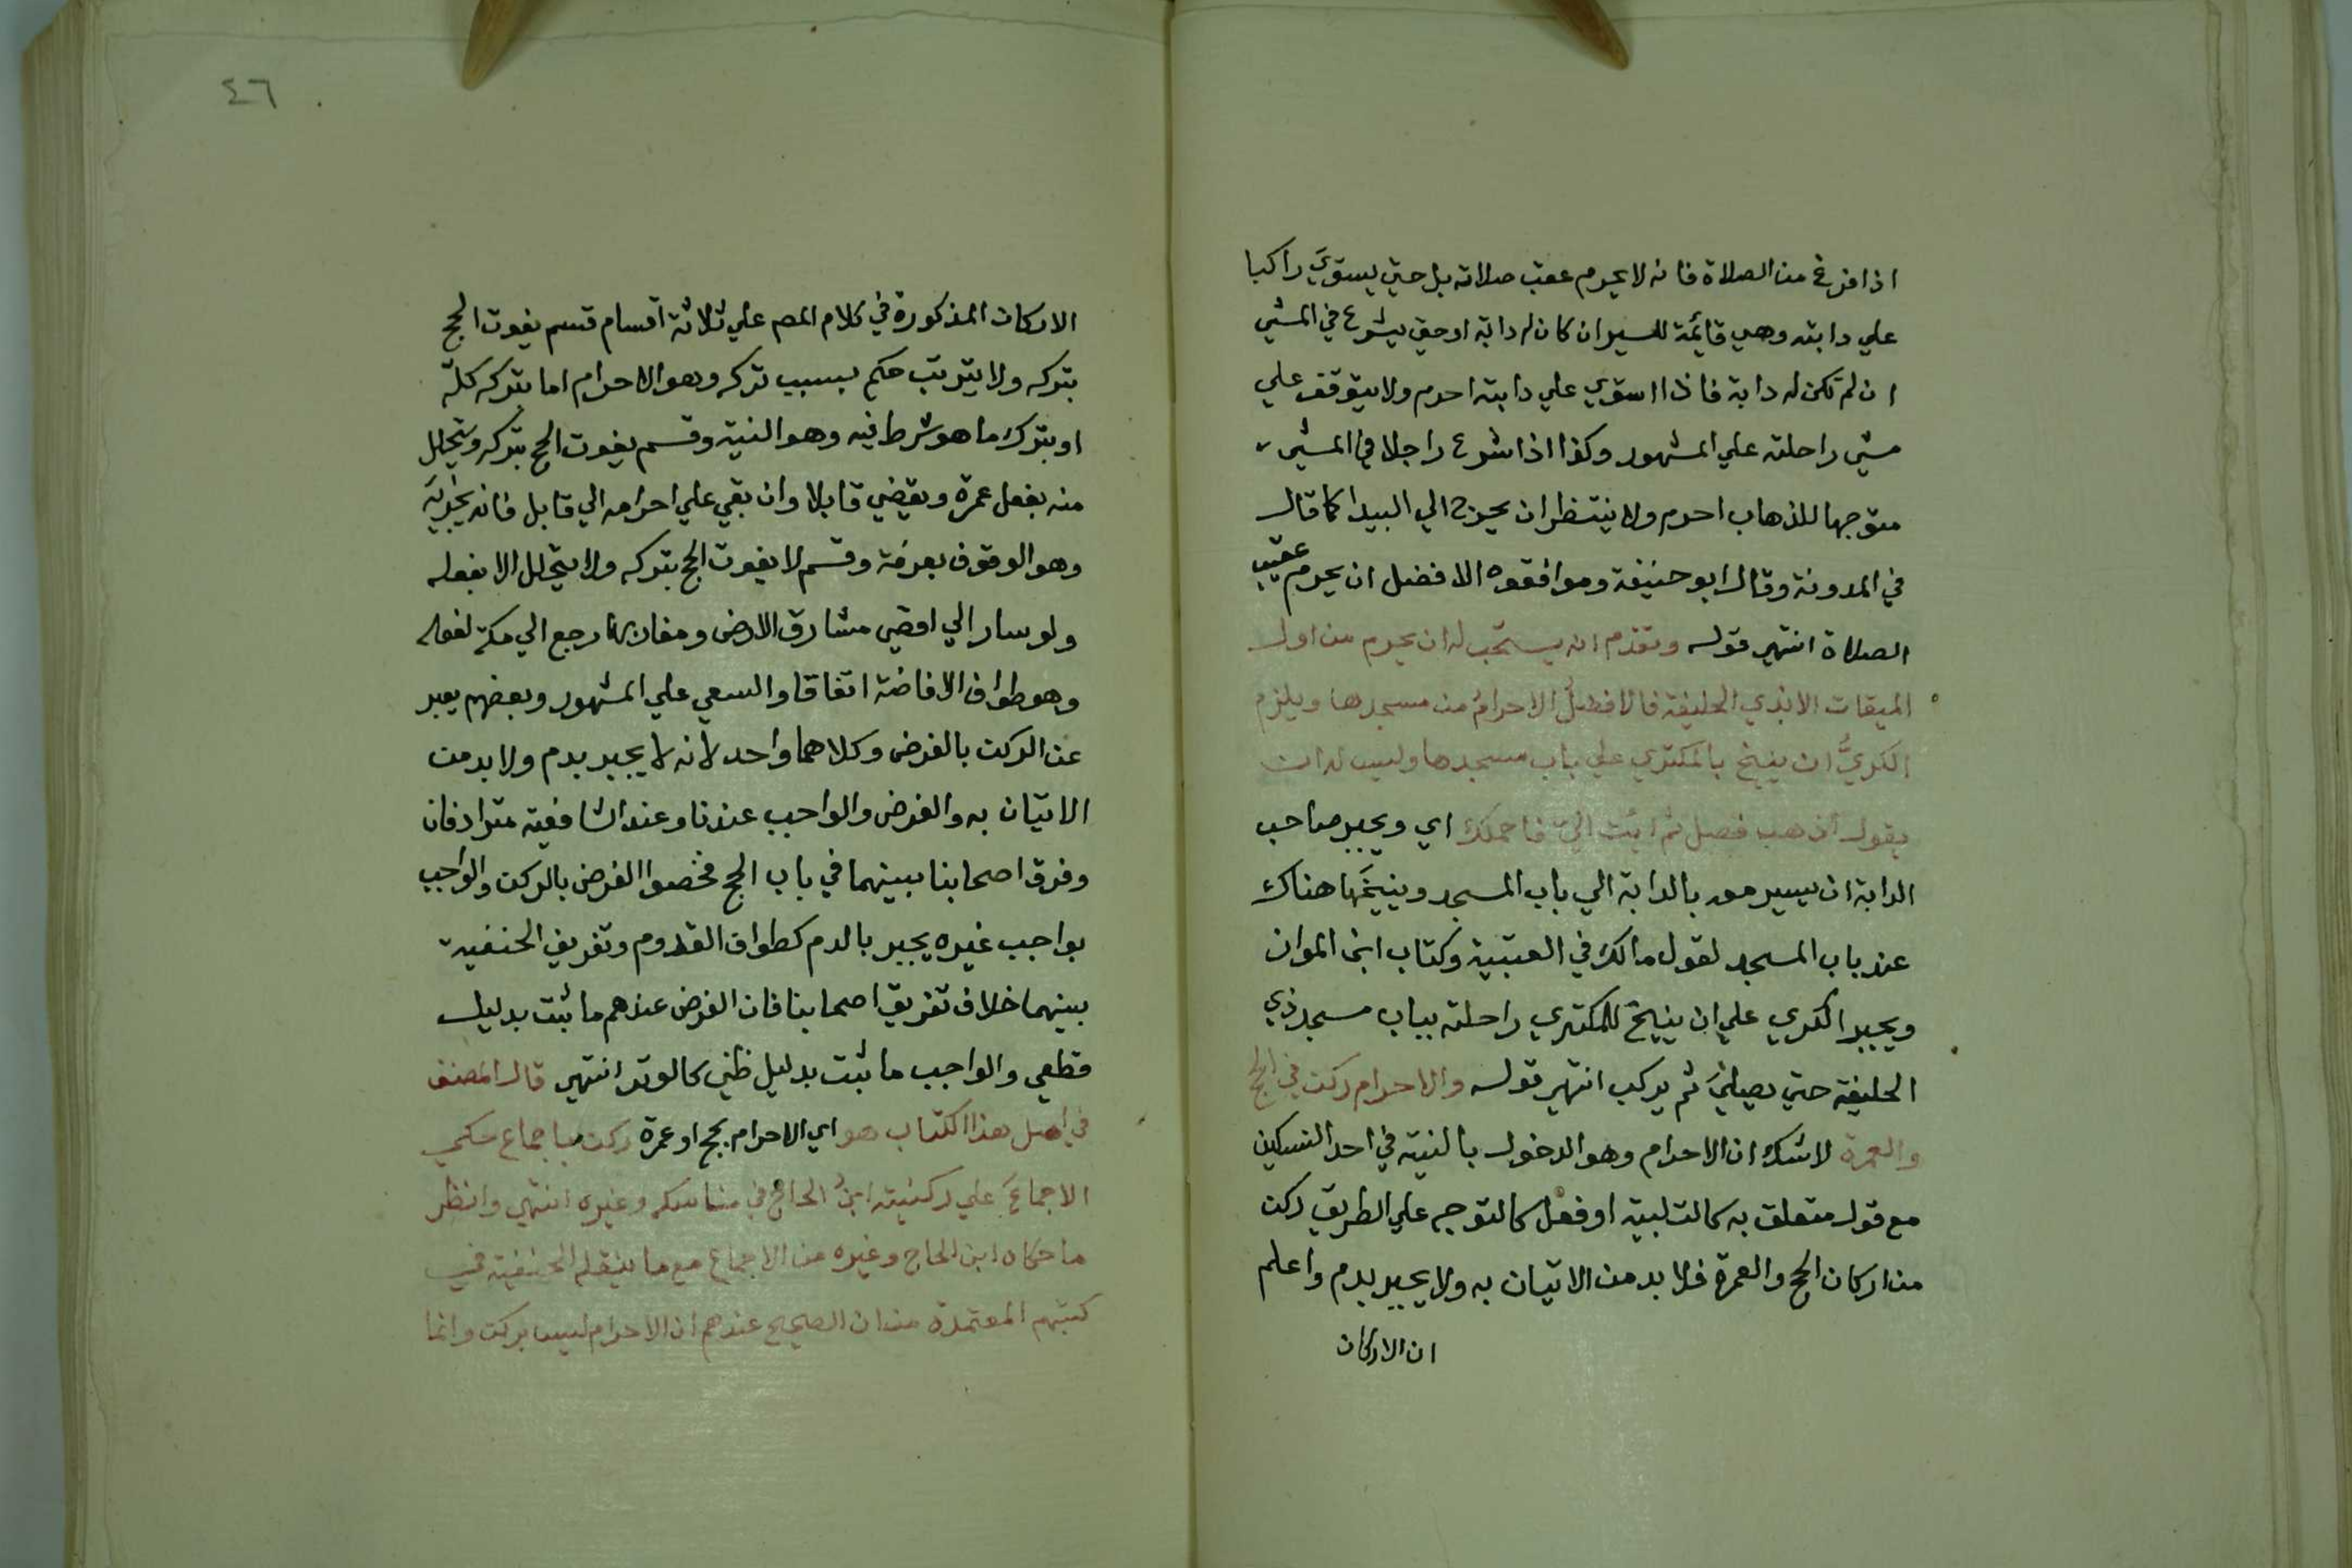 اذا فرغ من الصلاة فانه لا يحرم عقب صلاته بل حتي يستوي راكبا
علي دابته وهي قايمة للسير ان كان له دابة او حتي يشرع في المشي
ان لم تكن له دابة فاذا استوي علي دابته احرم ولا يتوقف علي
مشي راحلته علي المشهور وكذا اذا شرع راجلا في المشي
متوجها للذهاب احرم ولا ينتظر ان يخرج الي البيدا كما قال
في المدونة وقال ابو حنيفة وموافقوه الافضل ان يحرم عقيب
الصلاة انتهي قوله وتقدم انه يستحب له ان يحرم من اول
الميقات الا بذي الحليفة فالافضل الاحرام من مسجدها ويلزم
الكري ان ينيخ بالمكتري علي باب مسجدها وليس له ان
يقول اذهب فصل ثم ائت الي فاحملك اي ويجبر صاحب
الدابة ان يسير معه بالدابة الي باب المسجد وينيخها هناك
عند باب المسجد لقول مالك في العتبية وكتاب ابن المواز
ويجبر الكري علي ان ينيخ للمكتري راحلته بباب مسجد ذي
الحليفة حتي يصلي ثم يركب انتهي قوله والاحرام ركن في الحج
والعمرة لا شك ان الاحرام وهو الدخول بالنية في احد النسكين
مع قول متعلق به كالتلبية او فعل كالتوجه علي الطريق ركن
من اركان الحج والعمرة فلا بد من الاتيان به ولا يجبر بدم واعلم
ان الاركان
٤٦
الاركان المذكورة في كلام المص علي ثلاثة اقسام قسم يفوت الحج
بتركه ولا يترتب حكم بسبب تركه وهو الاحرام اما بتركه كله
او بترك ما هو شرط فيه وهو النية وقسم يفوت الحج بتركه ويتحلل
منه بفعل عمرة ويقضي قابلا وان بقي علي احرامه الي قابل فانه يجزيه
وهو الوقوف بعرفة وقسم لا يفوت الحج بتركه ولا يتحلل الا بفعله
ولو سار الي اقصي مشارق الارض ومغاربها رجع الي مكة لفعله
وهو طواف الافاضة اتفاقا والسعي علي المشهور وبعضهم يعبر
عن الركن بالفرض وكلاهما واحد لانه لا يجبر بدم ولا بد من
الاتيان به والفرض والواجب عندنا وعند الشافعية مترادفان
وفرق اصحابنا بينهما في باب الحج فخصوا الفرض بالركن والواجب
بواجب غيره يجبر بالدم كطواف القدوم وتفريق الحنفية
بينهما خلاف تفريق اصحابنا فان الفرض عندهم ما ثبت بدليل
قطعي والواجب ما ثبت بدليل ظني كالوتر انتهي قال المصنف
في اصل هذا الكتاب هو اي الاحرام بحج او عمرة ركن باجماع حكي
الاجماع علي ركنيته ابن الحاج في مناسكه وغيره انتهي وانظر
ما حكاه ابن الحاج وغيره من الاجماع مع ما ينقله الحنفية في
كتبهم المعتمدة من ان الصحيح عندهم ان الاحرام ليس بركن وانما